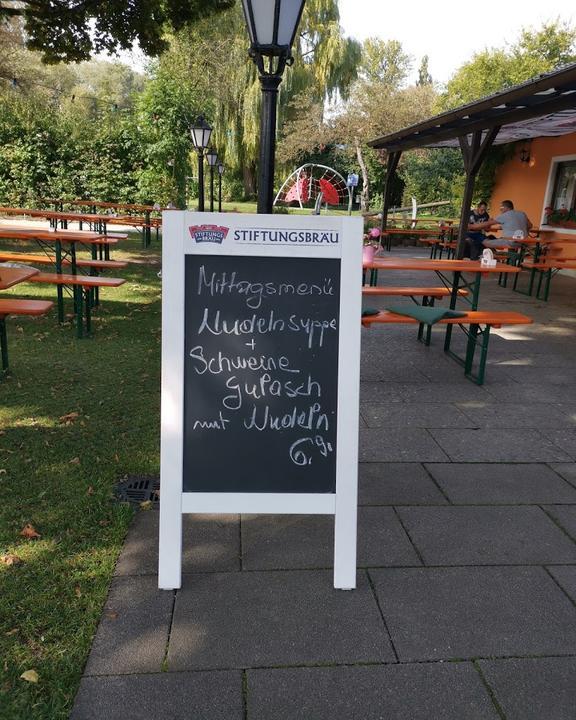 STIFTUNGS
BRÄU
STIFTUNGSBRÄU
Mittagsmenü
Nudelnsuppe
+
Schweine
gulasch
mit Nudeln
6.90